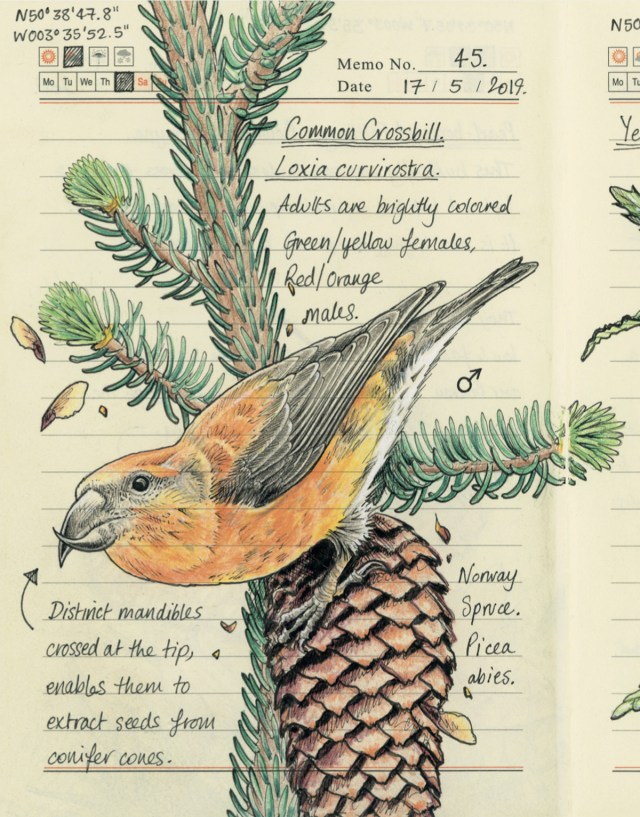 N50° 38' 47.8"
W003° 35' 52.5"
Mo Tu We Th Sa Su
Memo No. 45.
Date 17 / 5 / 2019.
Common Crossbill.
Loxia curvirostra.
Adults are brightly coloured
Green/yellow females,
Red/Orange
males.
♂
Distinct mandibles
crossed at the tip,
enables them to
extract seeds from
conifer cones.
Norway
Spruce.
Picea
abies.
N50
Mo Tu
Ye